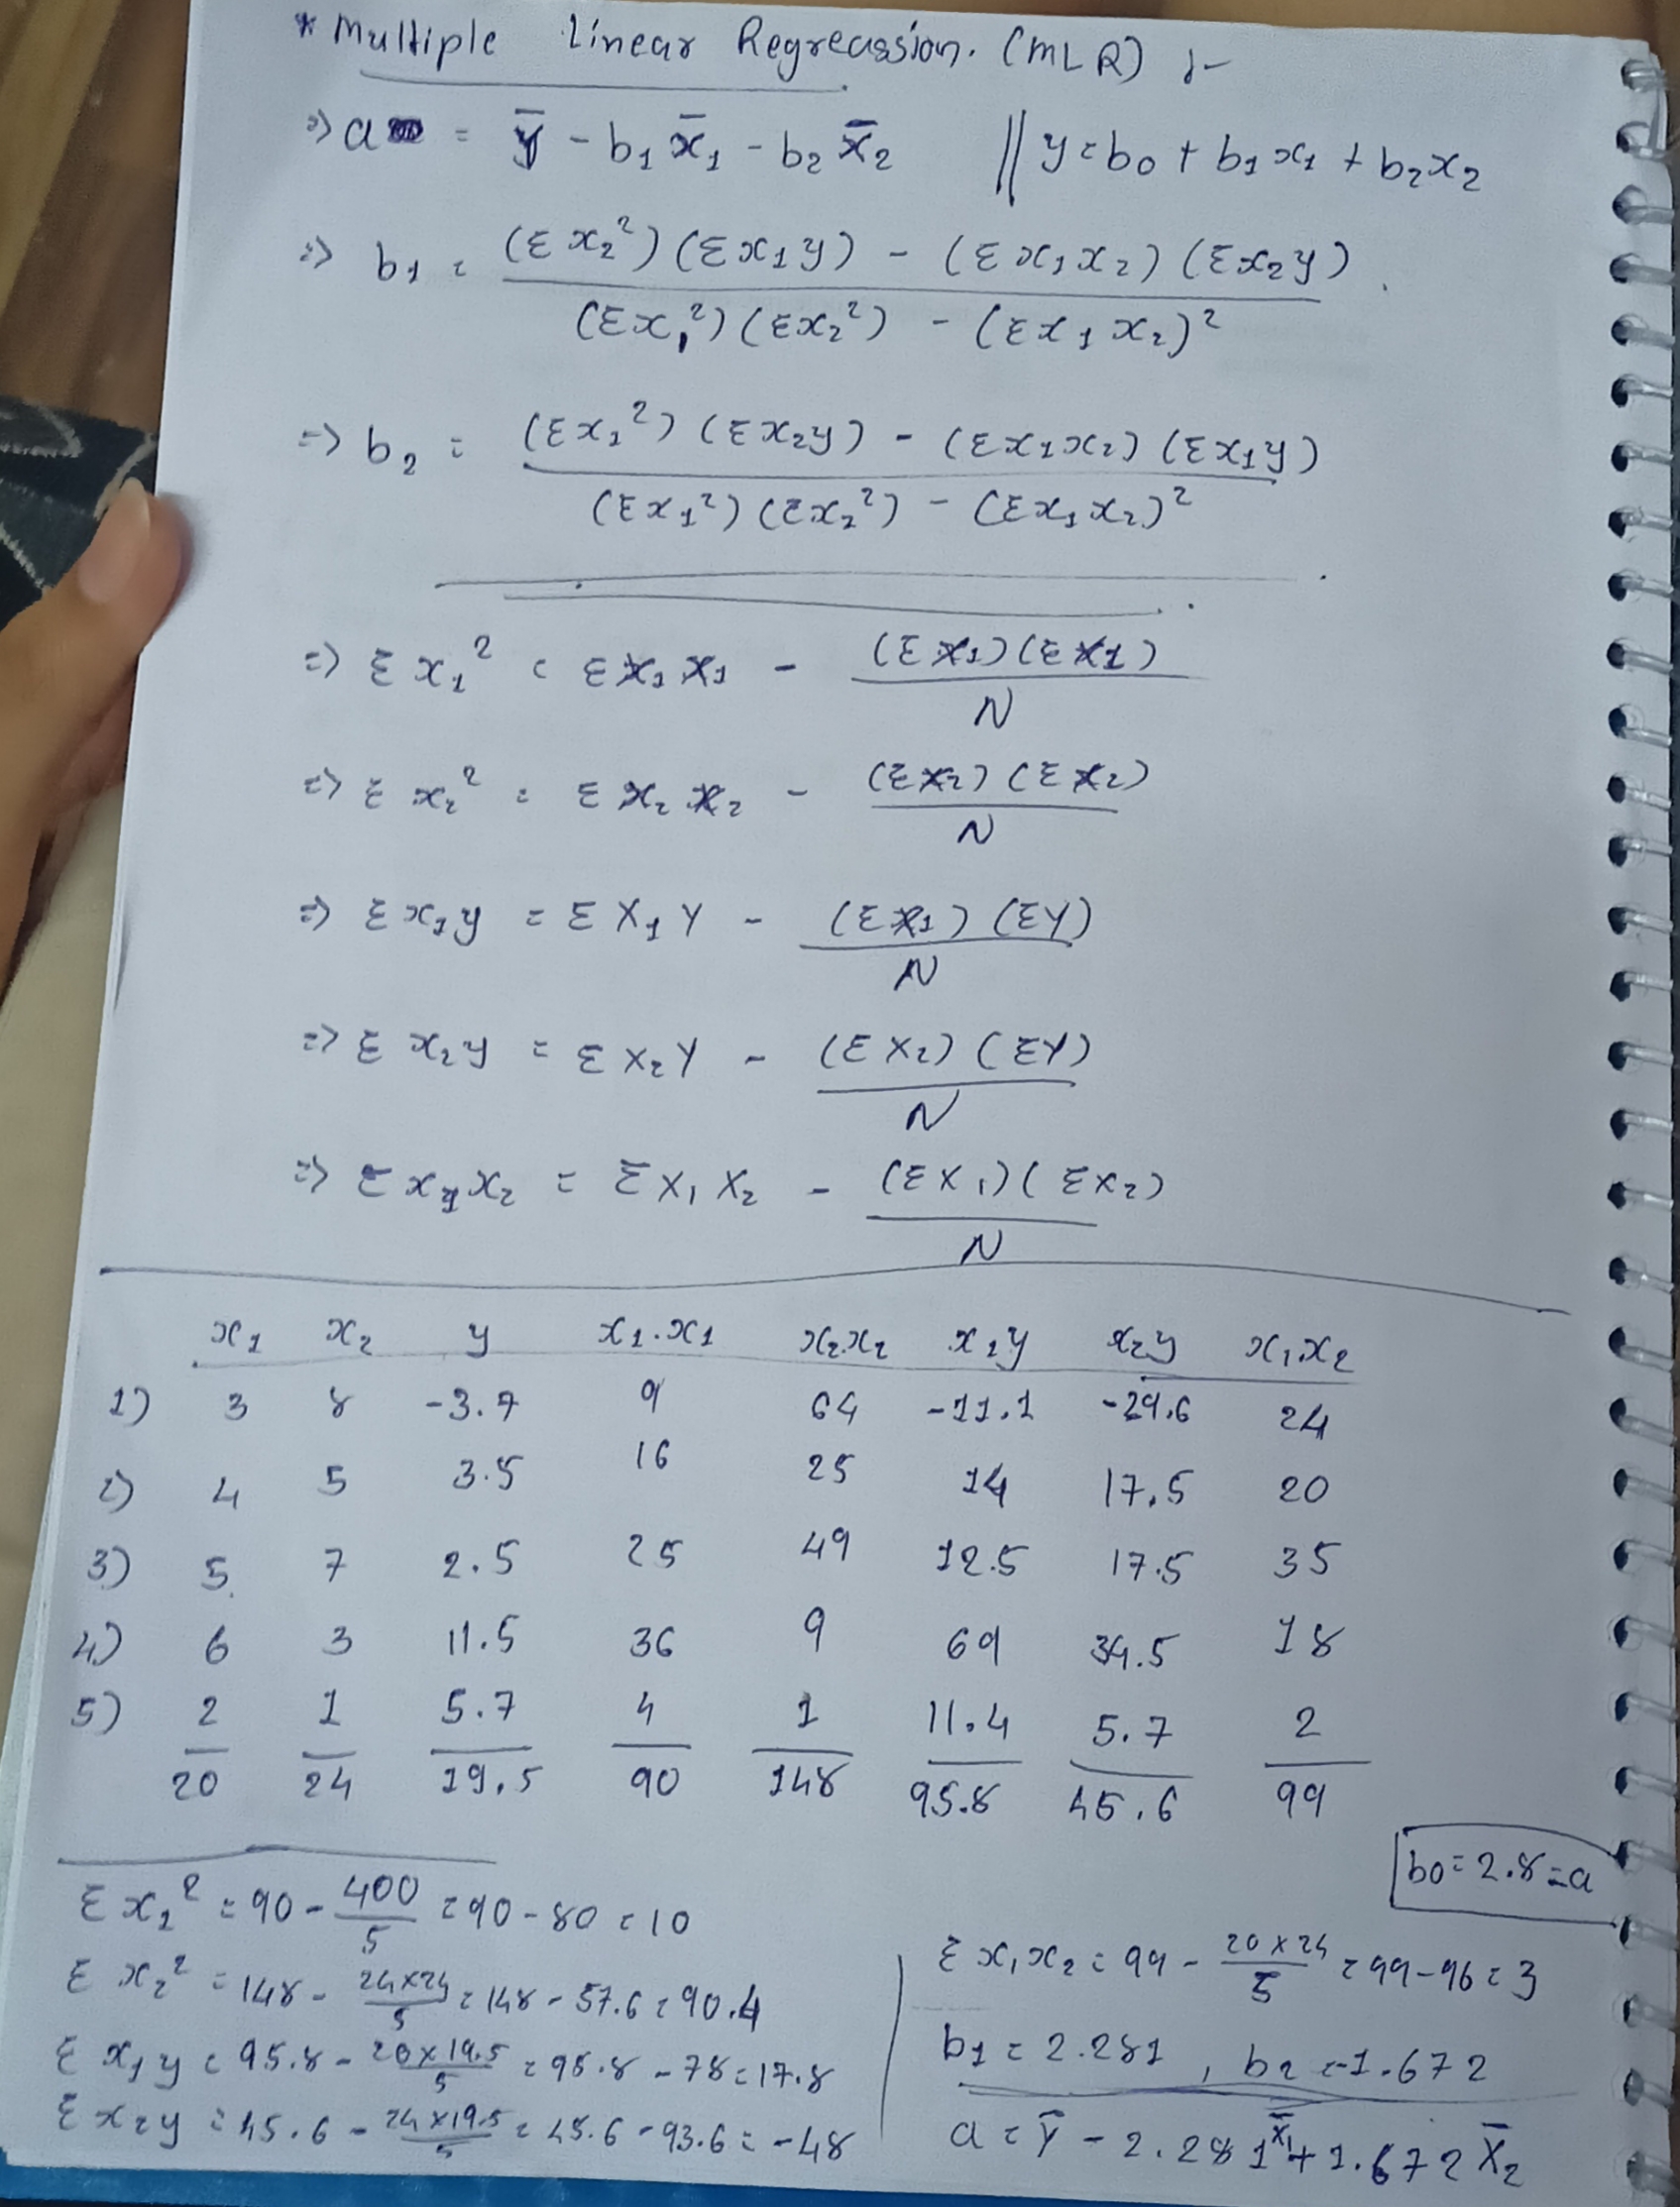 * Multiple Linear Regreassion. (MLR) :-
=> a = ȳ - b1 x̄1 - b2 x̄2 || y = b0 + b1 x1 + b2 x2
=> b1 = (Σ x2²) (Σ x1 y) - (Σ x1 x2) (Σ x2 y)
(Σ x1²) (Σ x2²) - (Σ x1 x2)²
=> b2 = (Σ x1²) (Σ x2 y) - (Σ x1 x2) (Σ x1 y)
(Σ x1²) (Σ x2²) - (Σ x1 x2)²
=> Σ x1² = Σ X1 X1 - (Σ X1) (Σ X1)
N
=> Σ x2² = Σ X2 X2 - (Σ X2) (Σ X2)
N
=> Σ x1 y = Σ X1 Y - (Σ X1) (Σ Y)
N
=> Σ x2 y = Σ X2 Y - (Σ X2) (Σ Y)
N
=> Σ x1 x2 = Σ X1 X2 - (Σ X1) (Σ X2)
N
x1 x2 y x1.x1 x2.x2 x1y x2y x1.x2
1) 3 8 -3.7 9 64 -11.1 -29.6 24
2) 4 5 3.5 16 25 14 17.5 20
3) 5 7 2.5 25 49 12.5 17.5 35
4) 6 3 11.5 36 9 69 34.5 18
5) 2 1 5.7 4 1 11.4 5.7 2
20 24 19.5 90 148 95.8 45.6 99
b0 = 2.8 = a
Σ x1² = 90 - 400/5 = 90 - 80 = 10
Σ x2² = 148 - 24×24/5 = 148 - 57.6 = 90.4
Σ x1 y = 95.8 - 20×19.5/5 = 95.8 - 78 = 17.8
Σ x2 y = 45.6 - 24×19.5/5 = 45.6 - 93.6 = -48
Σ x1 x2 = 99 - 20×24/5 = 99 - 96 = 3
b1 = 2.281 , b2 = -1.672
a = Ȳ - 2.281 x̄1 + 1.672 X̄2